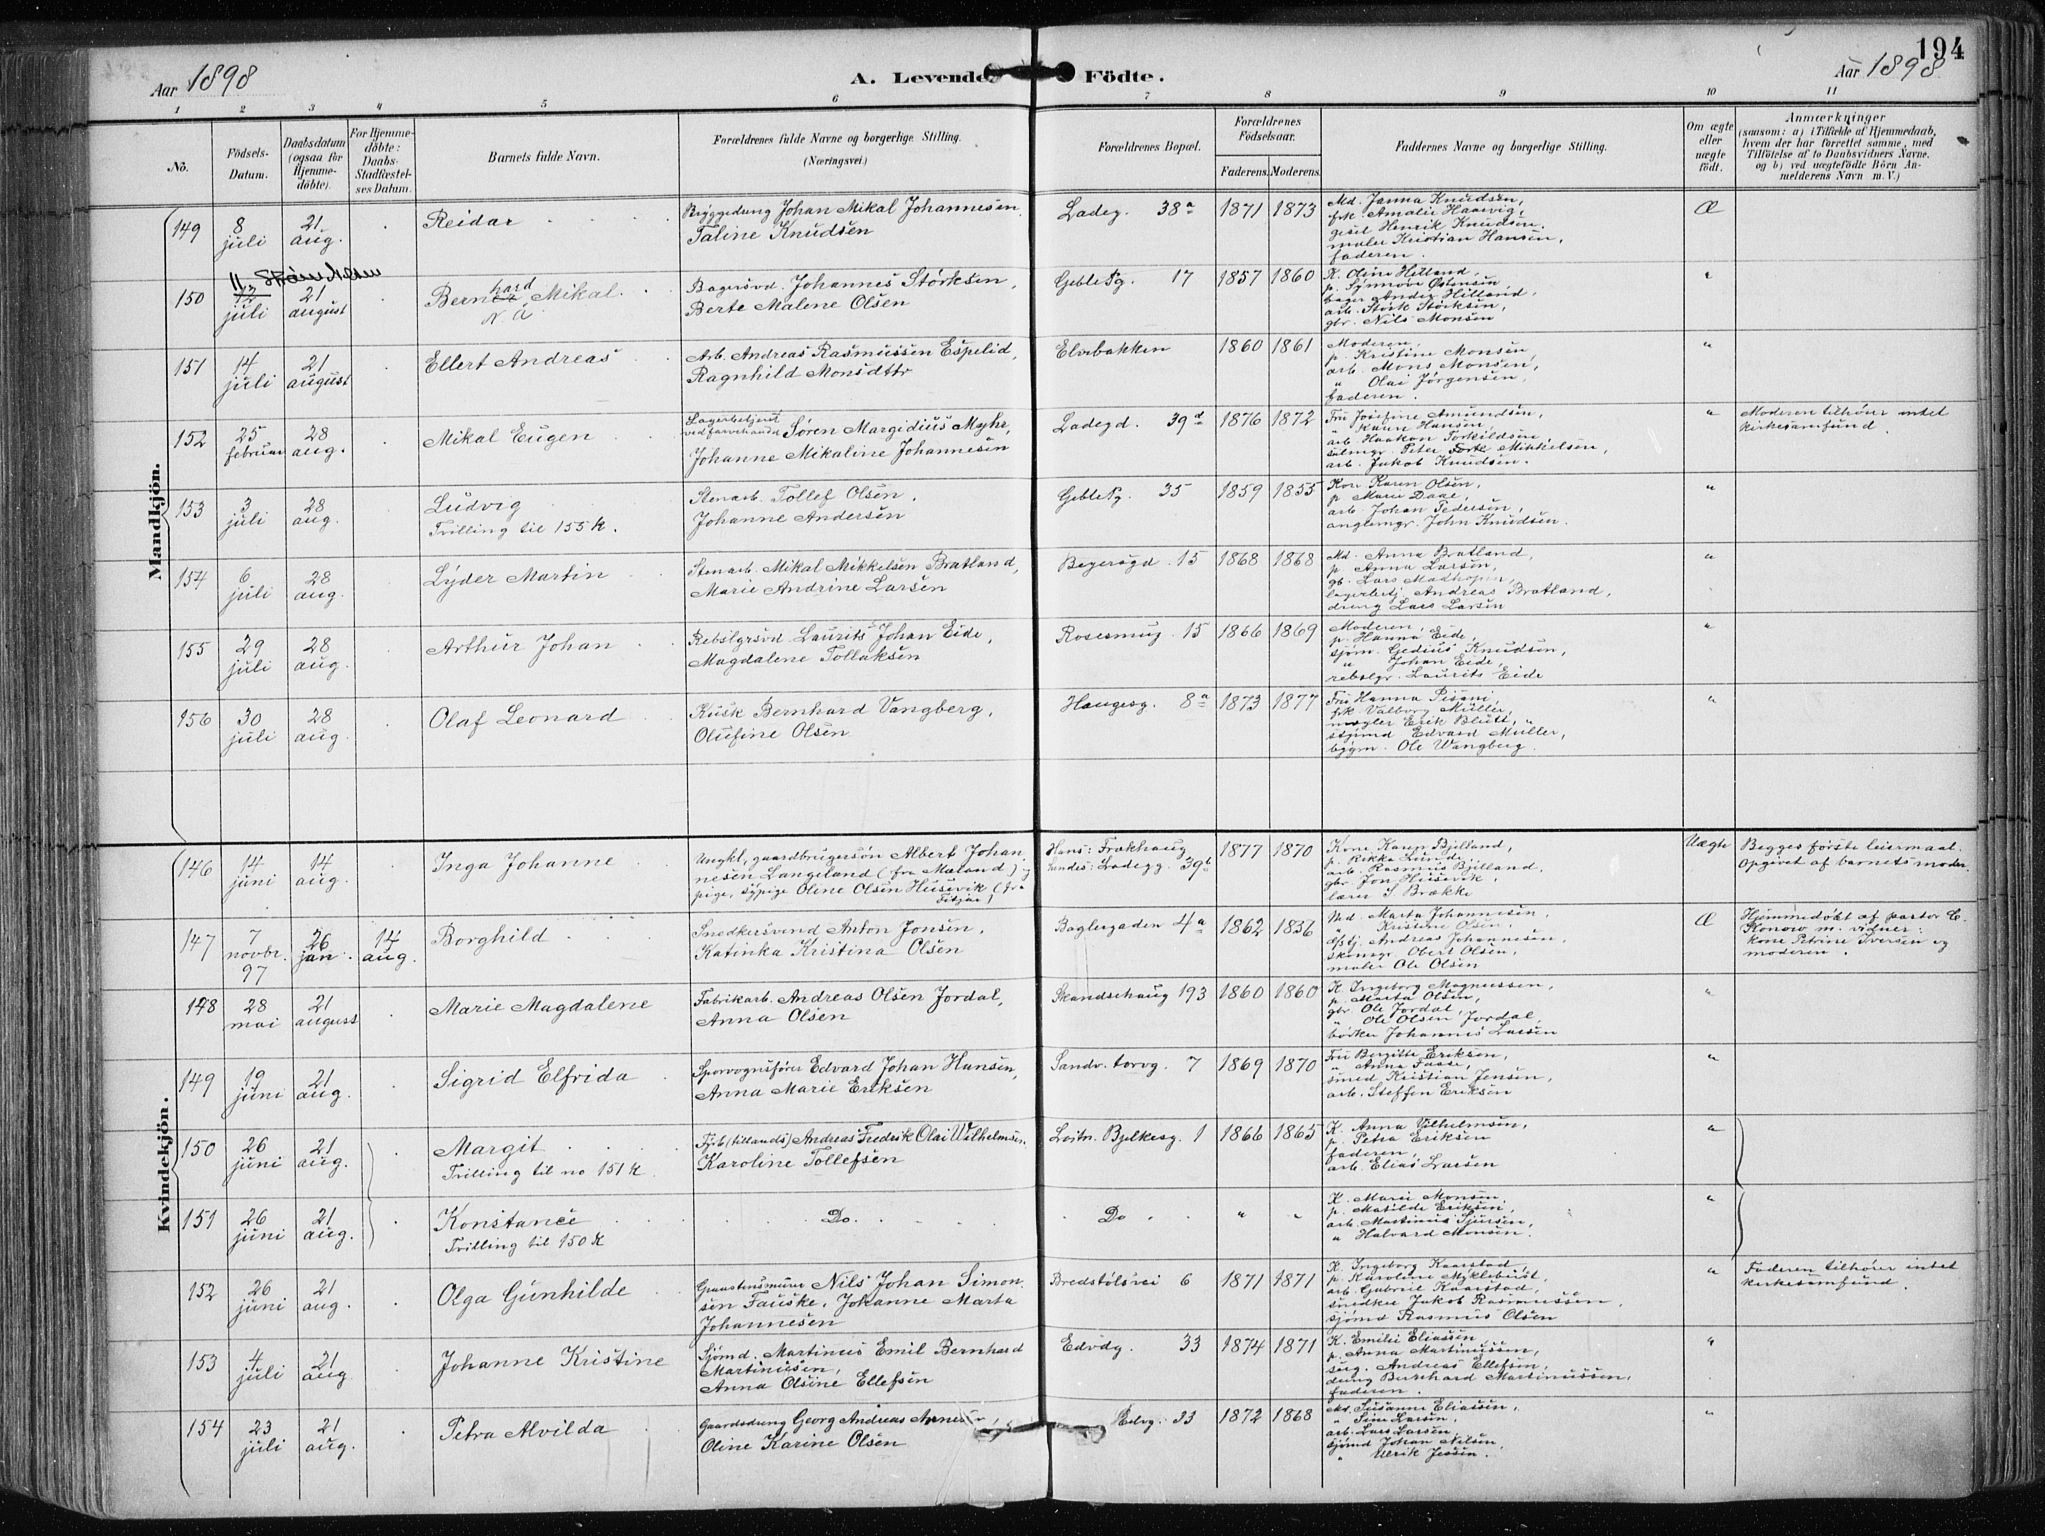 194
Aar 1898
A. Levende Födte.
Aar 1898
1 2 3 4 5 6 7 8 9 10 11
No.
Födsels-Datum.
Daabsdatum (ogsaa for Hjemme-döbte).
For Hjemme-döbte: Daabs-Stadfæstel-ses Datum.
Barnets fulde Navn.
Forældrenes fulde Navne og borgerlige Stilling.
(Næringsvei.)
Forældrenes Bopæl.
Forældrenes Födselsaar.
Faderens. Moderens.
Faddernes Navne og borgerlige Stilling.
Om ægte eller nægte födt.
Anmærkninger
(saasom: a) i Tilfælde af Hjemmedaab,
hvem der har forrettet samme, med
Tilföielse af to Daabsvidners Navne.
og b) ved uægtefödte Börn An-
melderens Navn m. V.)
Mandkjön.
149
8 juli
21 aug.
Reidar
Bryggedung Johan Mikal Johannesen,
Taline Knudsen
Ladeg. 38a
1871 1873
Md. Janna Knudsen,
frk Amalie Haasvig,
gesel Henrik Knudsen,
maler Kristian Hansen,
faderen.
Æ
150
11
12 juli
21 august
Bernhard Mikal
N. A
Bagersvd. Johannes Størksen,
Berte Malene Olsen
Geblepg. 17
1857 1860
K. Oline Hitland,
p. Synnøve Østensen,
bager Anders Hitland,
arb. Størk Størksen,
gbr. Nils Monsen
"
151
14 juli
21 august
Ellert Andreas
Arb. Andreas Rasmussen Espelid,
Ragnhild Monsdttr
Elvebakken
1860 1861
Moderen,
p. Kristine Monsen,
arb. Mons Monsen,
" Olai Jørgensen,
faderen.
"
152
25 februar
28 aug.
Mikal Eugen
Lagerbetjent
ved farvehandel Søren Margidius Myhr,
Johanne Mikaline Johannesen
Ladegd. 39d
1876 1872
Fru Josefine Amundsen,
" Karen Hansen,
arb Haakon Torkildsen,
salmgr. Peter Mikkelsen,
arb. Jakob Knudsen.
"
Moderen tilhører intet
kirkesamfund.
153
3 juli
28 aug.
Ludvig
Tvilling til 155 k.
Stenarb. Tollef Olsen,
Johanne Andersen
Geblepg. 35
1859 1855
Kon Karen Olsen,
p Marie Daae,
arb. Johan Pedersen,
anglemgr. John Knudsen.
"
154
6 juli
28 aug.
Lyder Martin
Stenarb. Mikal Mikkelsen Bratland,
Marie Andrine Larsen
Beyersgd. 15
1868 1868
Md. Anna Bratland,
p. Anna Larsen,
gb. Lars Madhopen,
lagerbetj Andreas Bratland,
dreng Lars Larsen
"
155
29 juli
28 aug.
Arthur Johan
Rebslgrsvd. Laurits Johan Eide,
Magdalene Tollaksen
Rosesmug 15
1866 1869
Moderen,
p. Hanna Eide,
sjøm. Gedius Knudsen,
" Johan Eide,
rebslgr. Laurits Eide
"
156
30 juli
28 aug.
Olaf Leonard
Kusk Bernhard Vangberg,
Olufine Olsen
Haugesg. 8a
1873 1877
Fru Hanna Pisani,
frk Valborg Müller,
mægler Erik Blütt,
Edvard Müller,
bgym. Ole Wangberg.
"
Kvindekjön.
146
14 juni
14 aug.
Inga Johanne
Ungkl, gaardbrugersøn Albert Johan-
nesen Langeland (fra Maland) og
pige, sypige Oline Olsen Husevik (fra
Fitjar)
Hans: Frækhaug
hendes: Ladegg. 39b
1877 1870
Kone Karen Bjelland,
p. Rikka Lunde,
arb. Rasmus Bjelland,
gbr Jon Husevik,
lærer S Brække
Uægte
Begges første leiermaal.
Opgivet af barnets moder.
147
7 novbr. 97
26 jan.
14 aug.
Borghild
Snedkersvend Anton Jonsen,
Katinka Kristina Olsen
Baglergaden 4a
1862 1856
Md. Marta Johannesen,
" Kristine Olsen,
Andreas Johannesen,
skomgr Obert Olsen,
maler Ole Olsen
Æ
Hjemmedøbt af pastor C.
Konow m. vidner:
kone Petrine Iversen og
moderen.
148
28 mai
21 august
Marie Magdalene
Fabrikarb. Andreas Olsen Jordal,
Anna Olsen
Skandsehaug 193
1860 1860
K. Ingeborg Magnussen,
p. Marta Olsen,
gbr Ole Jordal,
" Ole Olsen Jordal,
bødker Johannes Larsen
"
149
19 juni
21 aug.
Sigrid Elfrida
Sporvognsfører Edvard Johan Hansen,
Anna Marie Eriksen
Sandv. torvg. 7
1869 1870
Fru Bergitte Eriksen,
" Anna Faase,
smed Kristian Jensen,
arb. Steffen Eriksen
"
150
26 juni
21 aug.
Margit
Tvilling til no 151 k
Fyrb (tillands) Andreas Fredrik Olai Wilhelmsen,
Karoline Tollefsen
Løitn. Bjelkesg. 1
1866 1865
K. Anna Vilhelmsen,
p. Petra Eriksen
faderen,
arb. Elias Larsen
"
151
26 juni
21 aug.
Konstance
Tvilling til 150 k
Do.
Do
" "
K. Marei Monsen,
p. Matilde Eriksen,
arb. Martinus Sjursen,
" Halvard Monsen.
"
152
26 juni
21 aug.
Olga Gunhilde
Graastensmurer Nils Johan Simon-
sen Fauske, Johanne Marta
Johannesen
Bredstølsvei 6
1871 1871
K. Ingeborg Kaarstad,
p. Karoline Myklebust,
arb. Gabriel Kaarstad,
snedker Jakob Rasmussen,
sjømd Rasmus Olsen
"
Faderen tilhører intet
kirkesamfund.
153
4 juli
21 aug
Johanne Kristine
Sjømd. Martinus Emil Bernhard
Martinusen,
Anna Olsine Ellefsen
Edvdg. 33
1874 1871
K. Emilie Eliassen,
p. Anna Martinussen,
Andreas Ellefsen,
dreng Bernhard Martinussen,
faderen.
"
154
23 juli
21 aug.
Petra Alvilda
Gaardsdreng Georg Andreas
Oline Karine Olsen
Edvg. 33
1872 1868
Md. Susanne Eliassen,
" Sina Larsen,
arb. Lars Larsen,
sjømd Johan Nilsen,
" Ulrik Jessen.
"